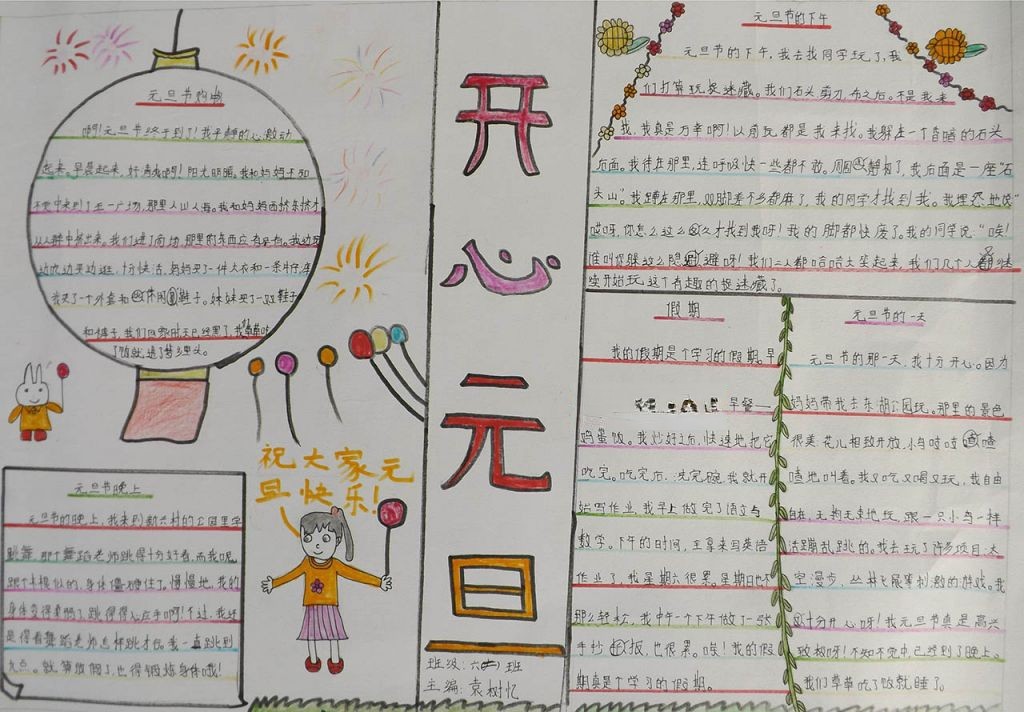 元旦节购物
啊！元旦节终于到了！我平静的心激动
起来。早晨起来，好清爽啊！阳光明媚。我和妈妈不知
不觉中来到了五一广场，那里人山人海。我和妈妈西挤东挤才
从人群中挤出来。我们进了商场，那里的东西应有尽有。我边玩
边吃边买边逛，十分快活，妈妈买了一件大衣和一条牛仔库
我买了一个外套和休闲鞋子。妹妹买了一双鞋子
和裤子，我们回家时天已经黑了，我草草吃
了饭就进了梦乡里头。
元旦节晚上
元旦节的晚上，我来到新六村的公园里学
跳舞，那个舞蹈老师跳得十分好看，而我呢，
跟个木模似的，身体僵硬住了。慢慢地，我的
身体变得柔韧了，跳得得心应手啊！不过，我还
是得看舞蹈老师怎样跳才行。我一直跳到
九点。就算放假了，也得锻炼身体哦！
祝大家元
旦快乐！
开心元旦
班级：六 班
主编：袁树忆
元旦节的下午
元旦节的下午，我去找同学玩了，我
们打算玩捉迷藏。我们石头剪刀布之后。不是我来
找，我真是万幸啊！以前玩都是我来找。我躲在一个昏暗的石头
后面。我待在那里，连呼吸快一些都不敢。周围 静极了，我后面是一座“石
头山”。我蹲在那里，双脚差不多都麻了，我的同学才找到我。我埋怨地说：“
哎呀，你怎么这么久才找到我呀！我的脚都快废了。我的同学说：“唉！
谁叫你躲这么隐避呀！我们二人都哈哈大笑起来，我们几个人继
续开始玩这个有趣的捉迷藏了。
假期
我的假期是个学习的假期。早
早餐一
鸡蛋饭。我炒好之后，快速地把它
吃完。吃完后，洗完碗，我就开
始写作业，我早上做完了语文与
数学。下午的时间，主要来写英语
作业了，我星期六很累。星期日也不
那么轻松，我中午一个下午做了一张
手抄报，也很累。唉！我的假
期真是个学习的假期。
元旦节的一天
元旦节的那一天，我十分开心。因为
妈妈带我去东湖公园玩。那里的景色
很美，花儿相致开放，小鸟吱吱喳
喳地叫着。我又吃又喝又玩，我自由
自在，无拘无束地玩，跟一只小鸟一样
活蹦乱跳的。我去玩了许多项目：太
空漫步，丛林飞展等刺激的游戏。我
十分开心呀！我元旦节真是高兴
致极呀！不知不觉中已经到了晚上。
我们草草吃了饭就睡了。